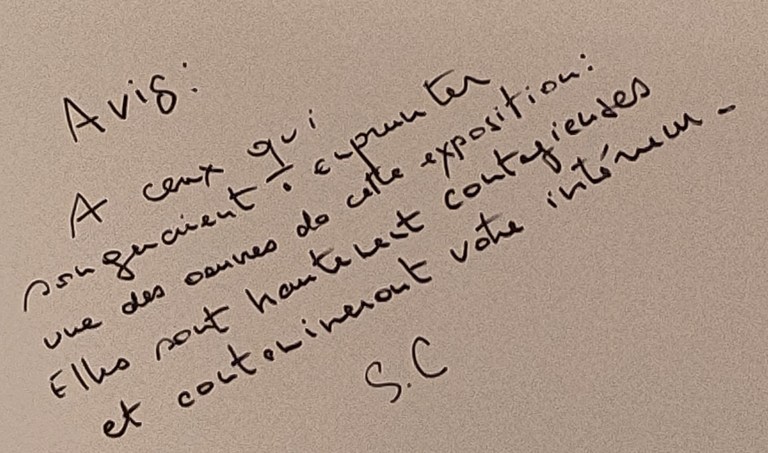 Avis:
A ceux qui
songeraient à emprunter
une des œuvres de cette exposition:
Elles sont hautement contagieuses
et contamineront votre intérieur.
S.C